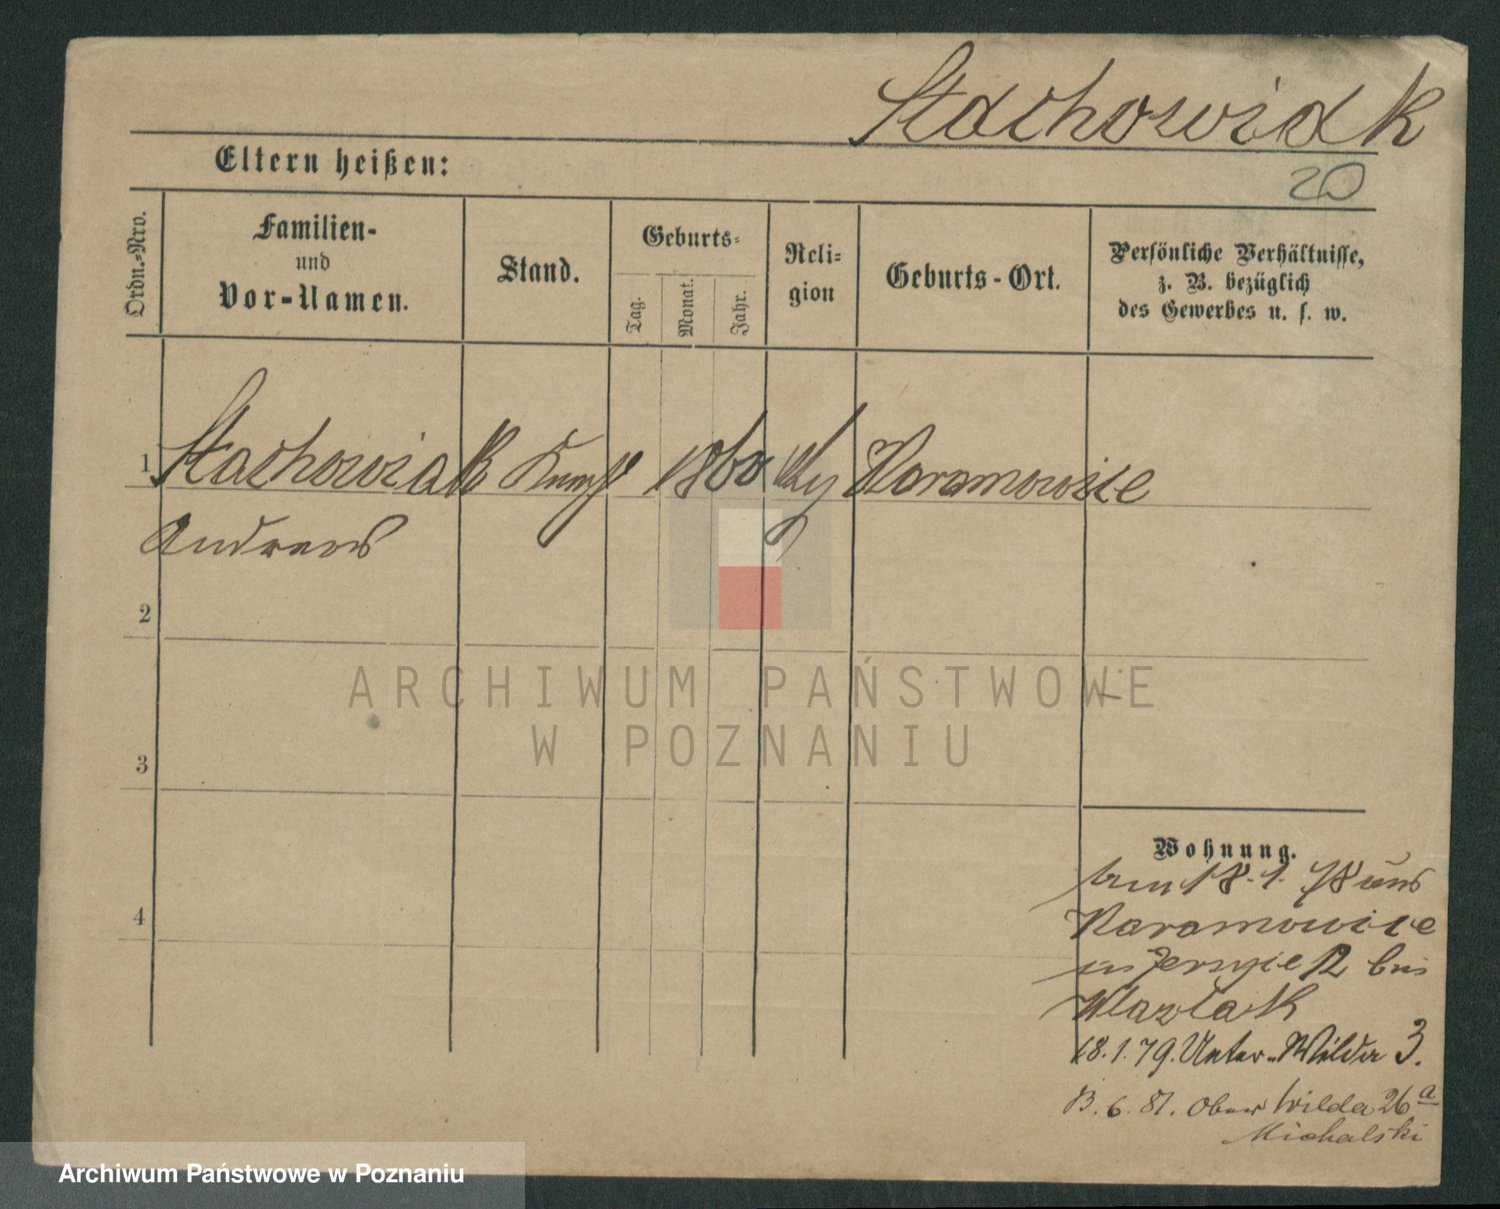 Stachowiak
Eltern heißen:
20
Ordn.-Nro.
Familien-
und
Vor-Namen.
Stand.
Geburts-
Tag.
Monat.
Jahr.
Reli-
gion
Geburts-Ort.
Persönliche Verhältnisse,
z. B. bezüglich
des Gewerbes u. s. w.
1 Stachowiak 1860 Naramowice
Andreas
2
3
4
Wohnung.
18.1.78 aus
Naramowice
in Jerzyce 12 bei
Wlazlak
18.1.79. Unter-Wilda 3.
13.6.81. Ober Wilda 26a
Michalski
ARCHIWUM PAŃSTWOWE
W POZNANIU
Archiwum Państwowe w Poznaniu